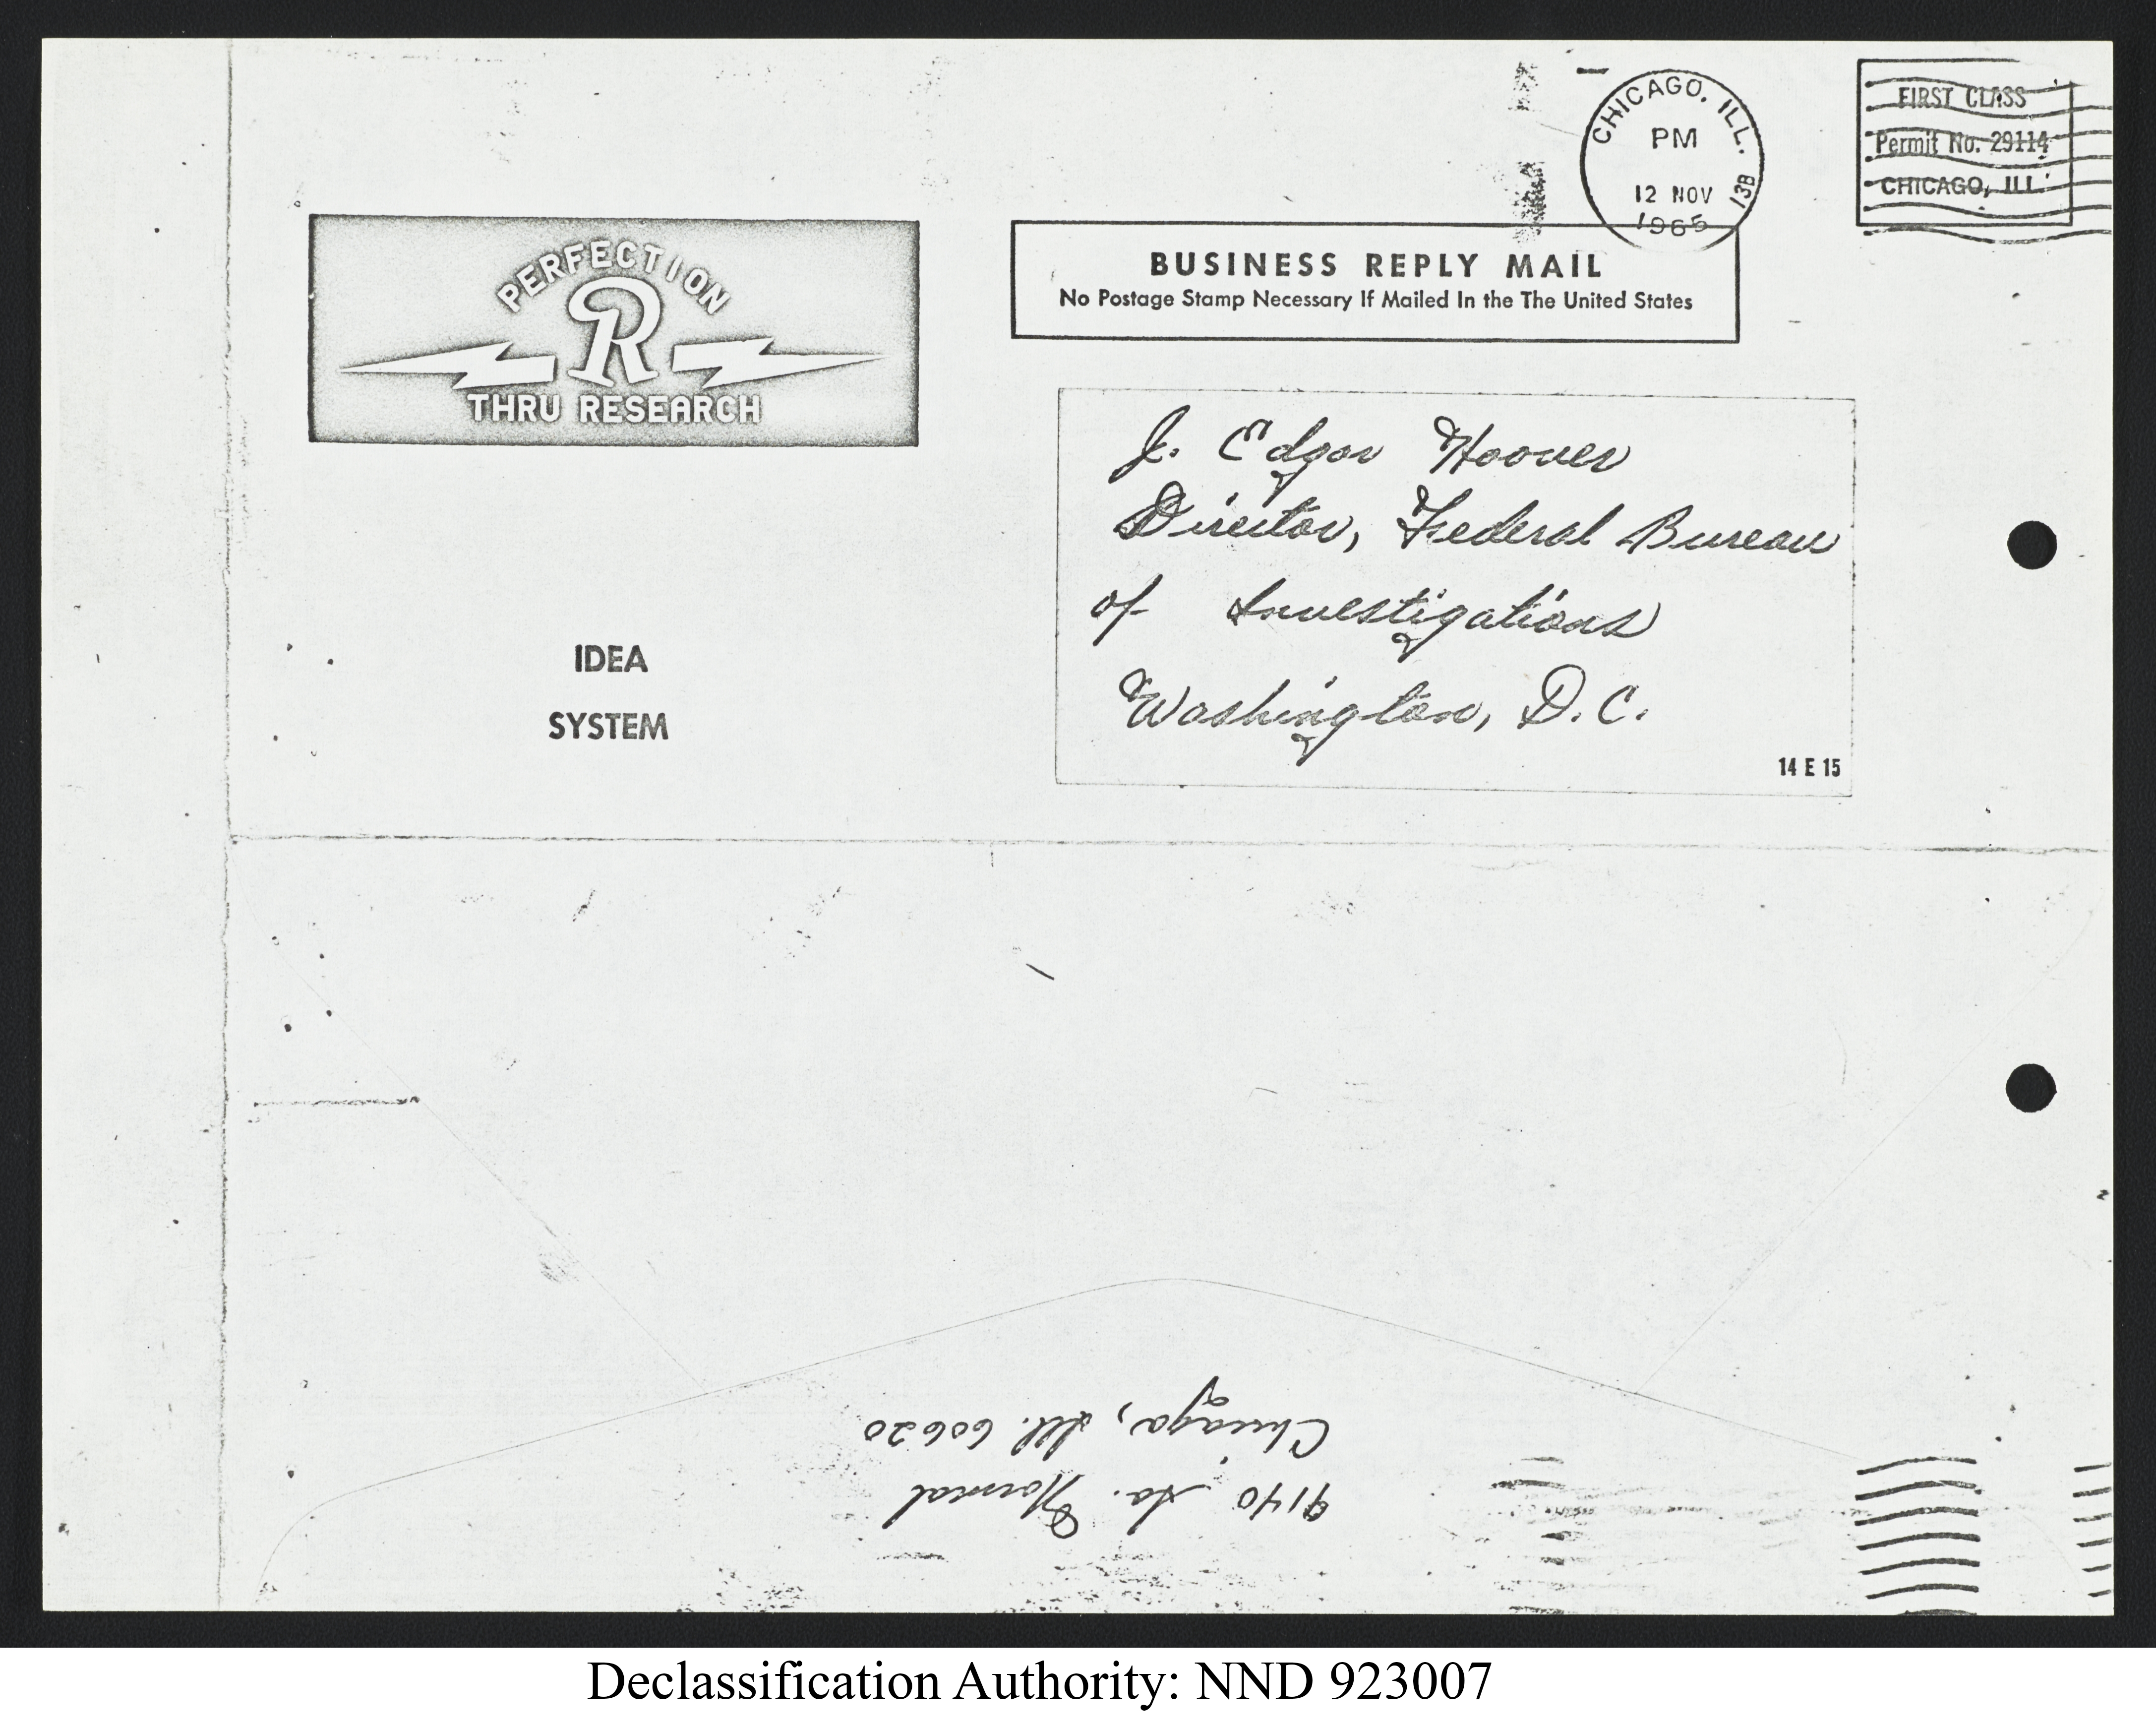 CHICAGO, ILL.
PM
12 NOV
1965
13B
FIRST CLASS
Permit No. 29114
CHICAGO, ILL.
PERFECTION
R
THRU RESEARCH
BUSINESS REPLY MAIL
No Postage Stamp Necessary If Mailed In the The United States
J. Edgar Hoover
Director, Federal Bureau
of Investigations
Washington, D.C.
14 E 15
IDEA
SYSTEM
9140 So. Normal
Chicago, Ill. 60620
Declassification Authority: NND 923007